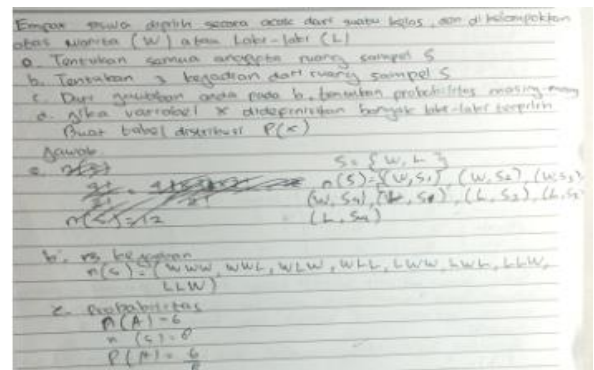 Empat siswa dipilih secara acak dari suatu kelas, dan dikelompokkan
atas wanita (W) atau Laki-laki (L)
a. Tentukan semua anggota ruang sampel S
b. Tentukan 3 kejadian dari ruang sampel S
c. Dari jawaban anda pada b, tentukan probabilitas masing-masing
d. jika variabel x didefinisikan banyak laki-laki terpilih
Buat tabel distribusi P(x)
Jawab
a.
S = {W, L}
n(S) = {W,S1}, (W, S2), (W,S3)
(W, S4), (L, S1), (L, S2), (L, S3
(L, S4)
n(S) = 12
b. kejadian
n(S) = {WWW, WWL, WLW, WLL, LWW, LWL, LLW,
LLW}
c. Probabilitas
n(A) = 6
n(S) = 8
P(A) = 6